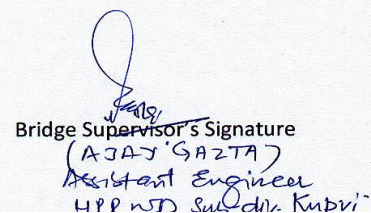 Bridge Supervisor's Signature
(AJAY GAZTA)
Assistant Engineer
HPPWD Sub divn. Kupvi